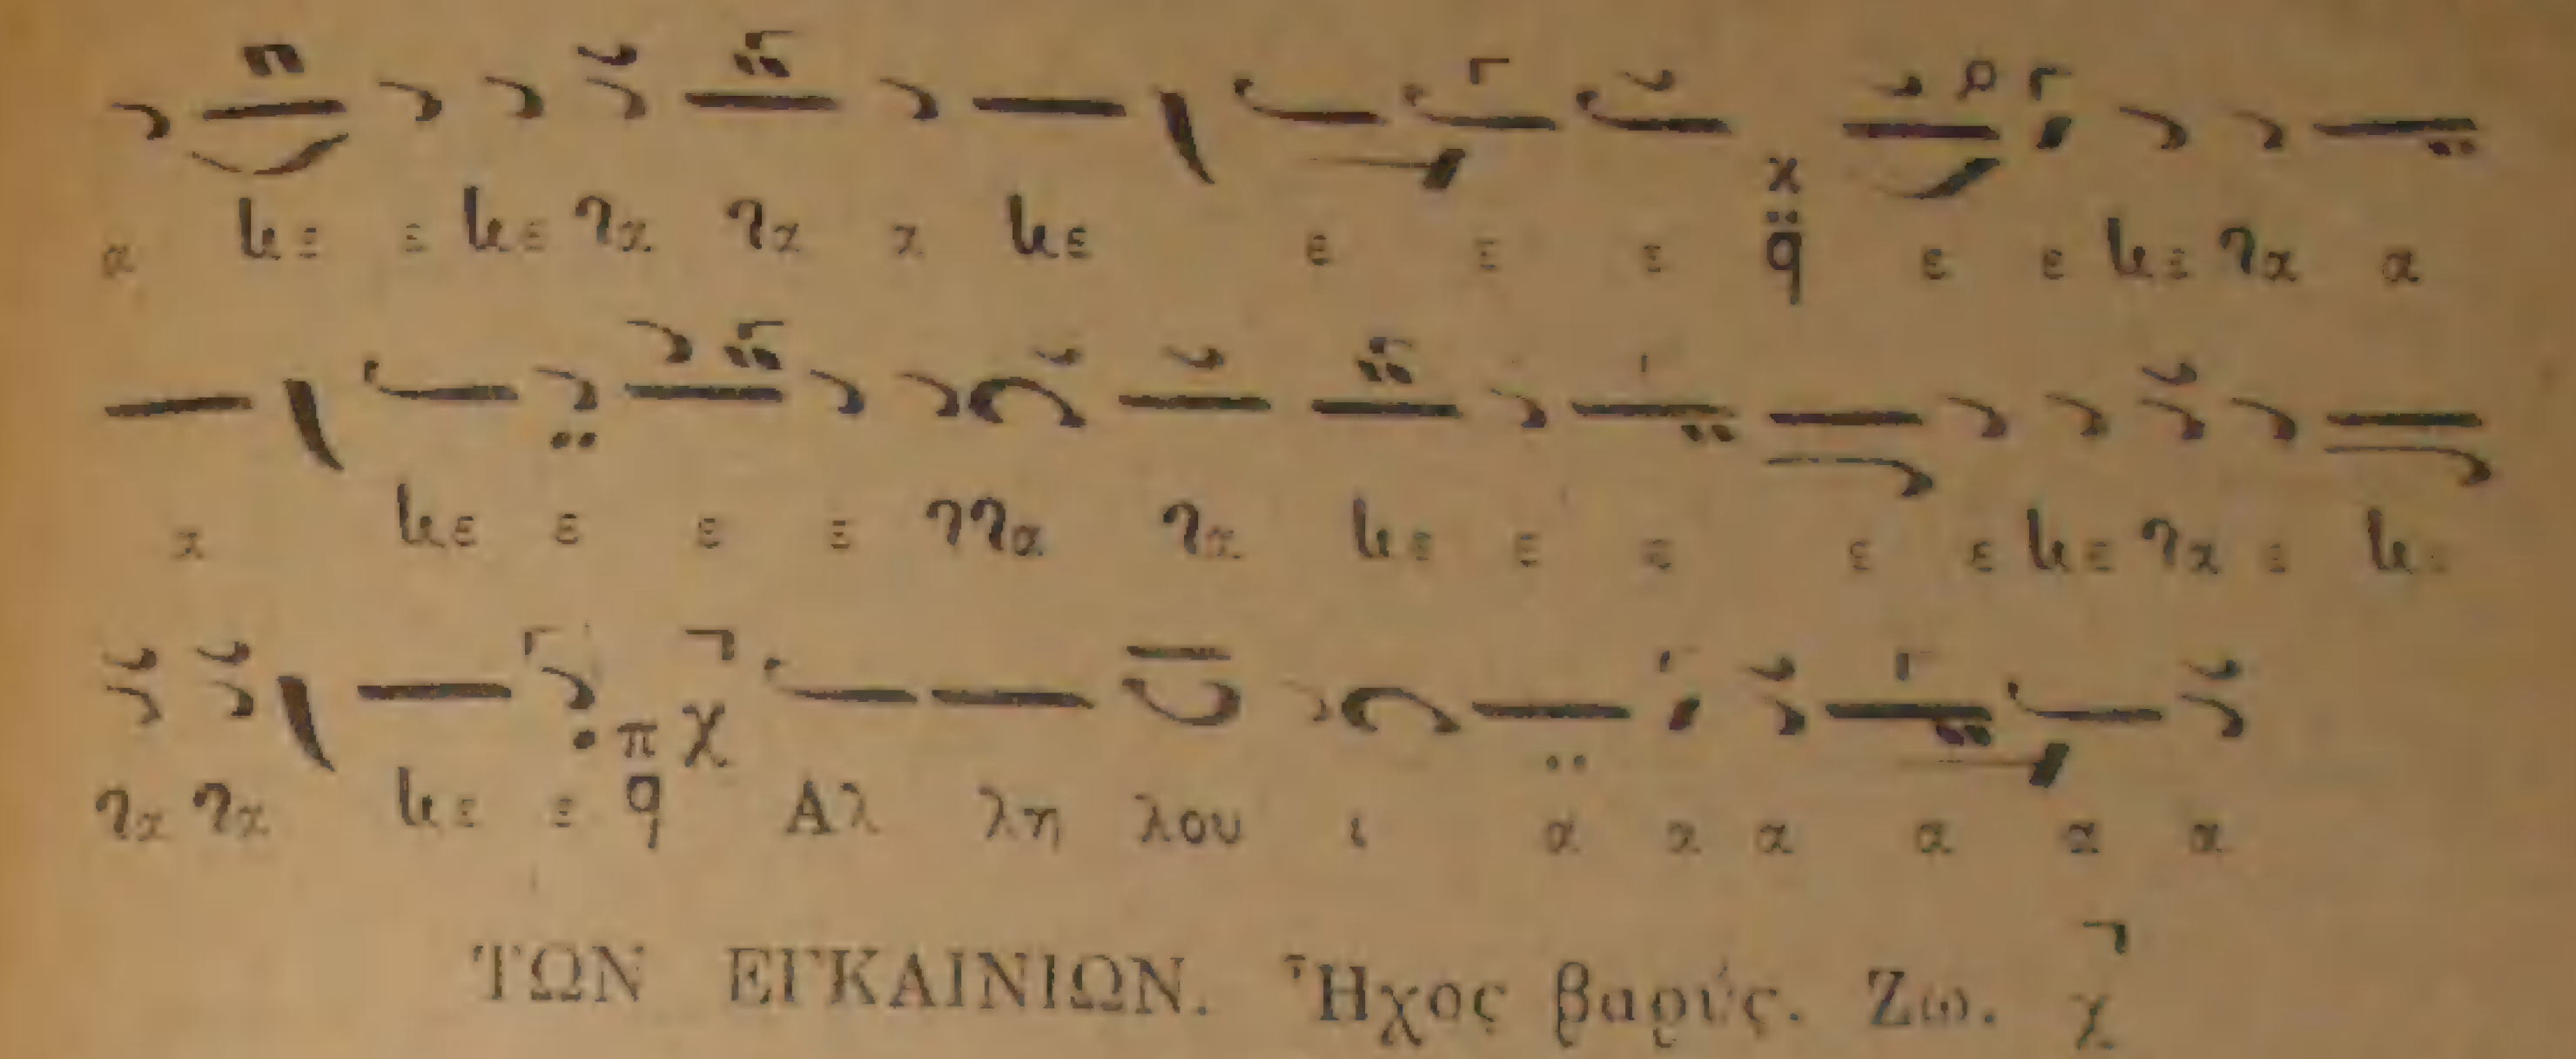 α νε ε νε να να α νε ε ε ε κ q ε ε νε να α
α νε ε ε ε ννα να νε ε ε ε ε νε να ε νε
να να νε ε π q χ Αλ λη λου ι α α α α α α
ΤΩΝ ΕΓΚΑΙΝΙΩΝ. Ἦχος βαρύς. Ζω. χ